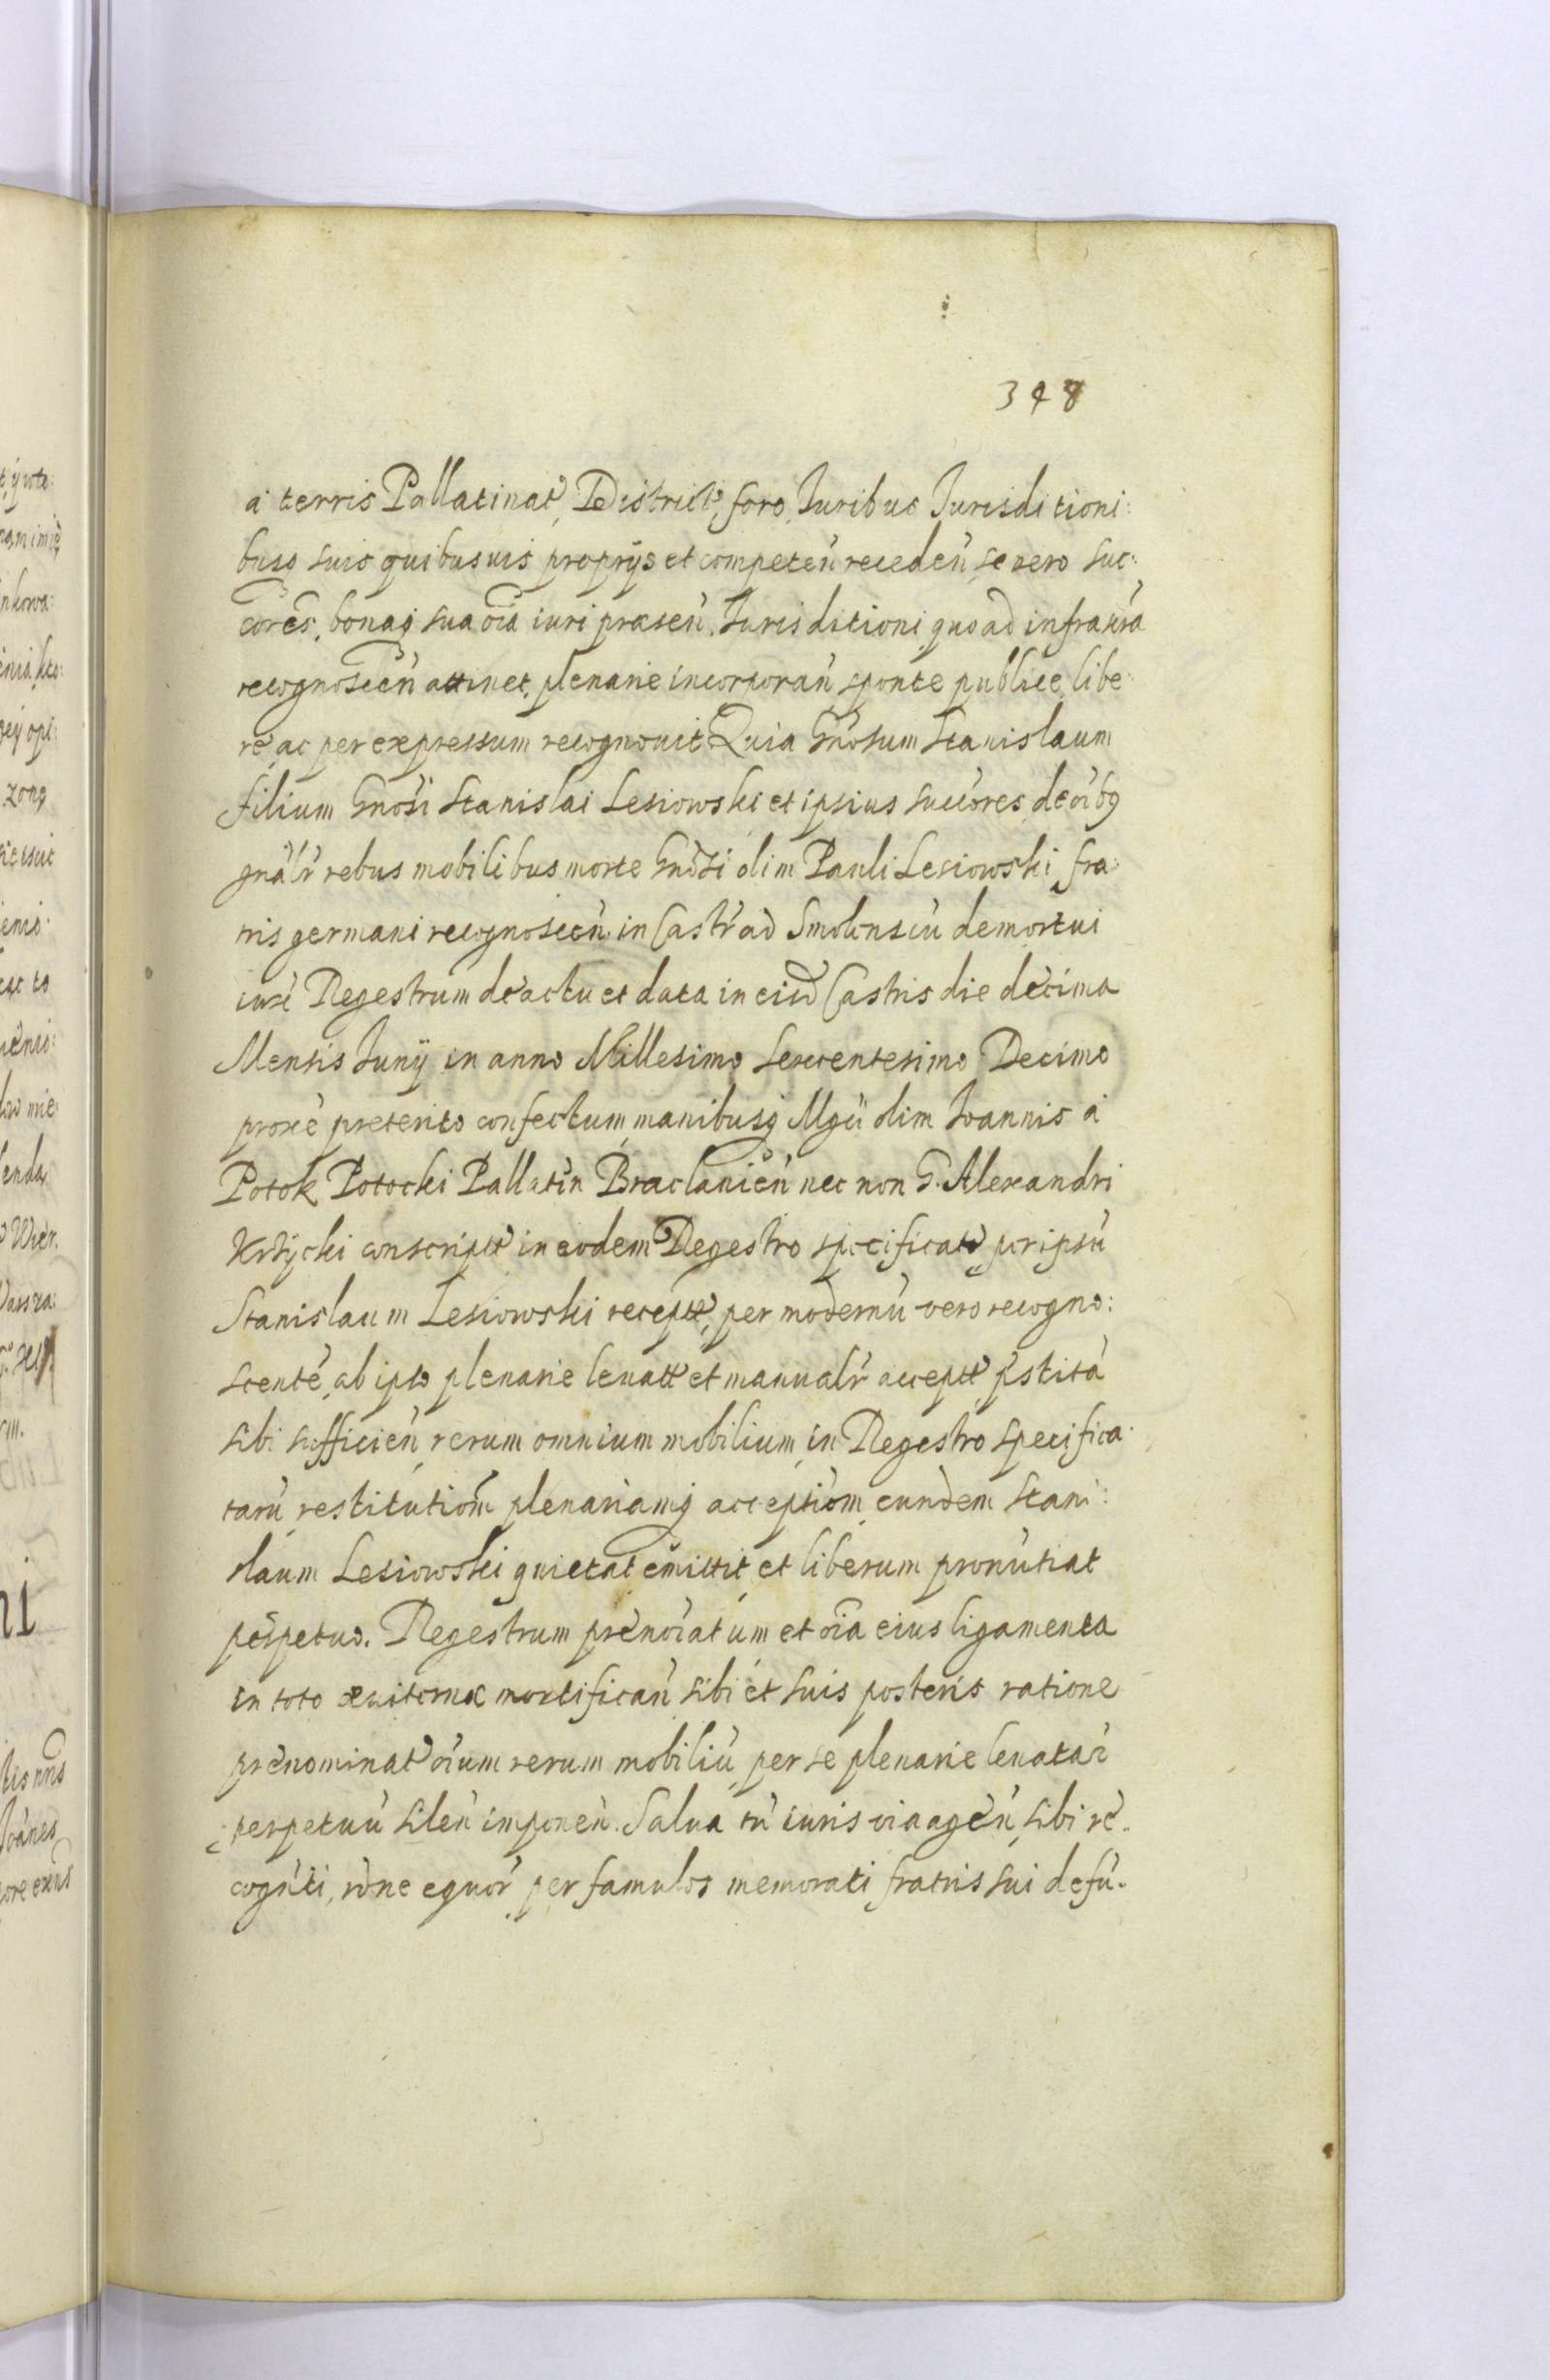 348
a terris Pallatinat, District, foro, Juribus Jurisditioni:
bus suis quibusuis proprijs et competen̄ receden̄, se vero suc:
cores, bonaq sua oīa iuri praesen̄. Jurisditioni quoad infraxra
recognoscen̄ attinet, plenarie incorporan̄ sponte publice, libe:
re ac per expressum recognouit Quia Gn̄osum Stanislaum
filium Gnosi Stanislai Lesiowski et ipsius succores, de oībq
gn̄alr̄ rebus mobilibus morte Gnosi olim Pauli Lesiowski fra:
tris germani recognoscen̄ in Castr ad Smolenscū demortui
iuxē Regestrum de actu et data in eisd Castris die decima
Mensis Junij in anno Millesimo Sexcentesimo Decimo
proxē preterito confectum, manibusq Mgci olim Joannis a
Potok Potocki Pallatin Braclanien̄ nec non G. Alexandri
Krzycki conscript in eodem Regestro specificat per ipsū
Stanislaum Lesiowski recept, per modernū vero recogno:
scentē ab ipso plenarie leuatt et manualr̄ accept pstitā
sibi sufficien̄ rerum omnium mobilium in Regestro specifica:
tarū restitutiom̄ plenariamq acceptiom̄ eundem Stani:
slaum Lesiowski quietat emittit et liberum pronūtiat
perpetuo. Regestrum prenoīatum et oīa eius ligamenta
in toto aeuiternae mortifican̄ sibi et suis posteris ratione
prenominat oīum rerum mobiliū per se plenarie leuatar
perpetuū silen̄ imponen̄. Salua tn̄ iuris via agen̄ sibi re:
cognti, rōne equor per famulos memorati fratris sui defū: